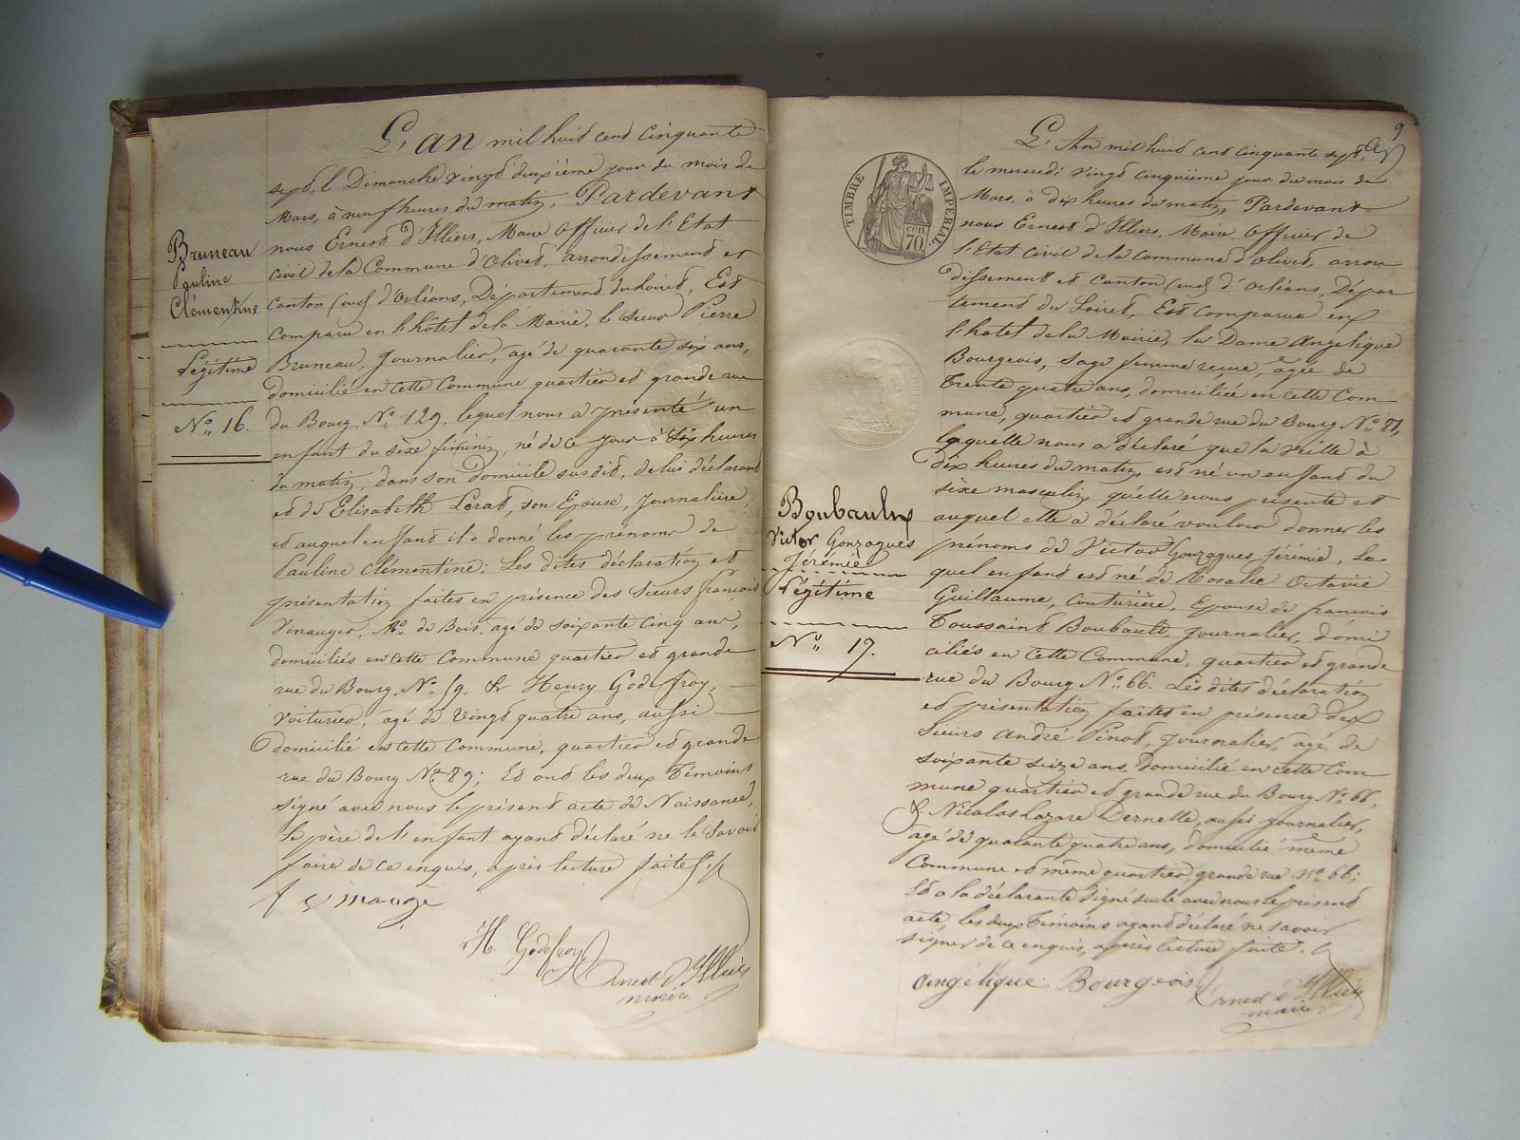 L'an mil huit cent cinquante
sept, le Dimanche vingt deuxième jour du mois de
Mars, à neuf heures du matin, Pardevant
nous Ernest d'Illiers, Maire Officier de l'Etat
civil de la Commune d'Olivet, arrondissement et
Canton (sud) d'Orléans, Département du Loiret, Est
Comparu en l'hôtel de la Mairie, le sieur Pierre
Bruneau, Journalier, agé de quarante six ans,
domicilié en cette Commune quartier et grande rue
du Bourg, No. 129. lequel nous a présenté un
enfant du sexe féminin, né de ce jour à six heures
du matin, dans son domicile susdit, de lui déclarant
et de Elisabeth Lerat, son Epouse, Journalière,
et auquel enfant il a donné les prénoms de
Pauline Clémentine. Les dites déclaration et
présentation faites en présence des Sieurs François
Vinauger, Md. de Bois, agé de soixante cinq ans,
domiciliés en cette Commune quartier et grande
rue du Bourg, No. 59. & Henry Godefroy,
Voiturier, agé de vingt quatre ans, aussi
domicilié en cette Commune, quartier et grande
rue du Bourg No. 89; Et ont les deux témoins
signé avec nous le présent acte de Naissance,
le père de l'enfant ayant déclaré ne le savoir
faire de ce enquis, après lecture faite.
H. Godefroy
Ernest d'Illiers
maire
Bruneau
Pauline
Clémentine
Légitime
No. 16.
9
TIMBRE IMPÉRIAL
70
L'An mil huit cent cinquante sept,
le mercredi vingt cinquième jour du mois de
Mars, à dix heures du matin, Pardevant
nous Ernest d'Illiers, Maire Officier de
l'Etat Civil de la Commune d'Olivet, arron
dissement et Canton (sud) d'Orléans, Dépar
tement du Loiret, Est Comparue en
l'hotel de la Mairie, la Dame Angelique
Bourgeois, Sage femme reçue, agée de
trente quatre ans, domiciliée en cette Com
mune, quartier et grande rue du Bourg No. 87,
laquelle nous a déclaré que la veille à
dix heures du matin, est né un enfant du
sexe masculin, qu'elle nous présente et
auquel elle a déclaré vouloir donner les
prénoms de Victor Gonzagues Jérémie, le-
quel enfant est né de Rosalie Octavie
Guillaume, Couturière, Epouse de françois
Toussaint Boubault, Journalier, domi
ciliés en cette Commune, quartier et grande
rue du Bourg No. 66. Les dites déclaration
et présentation faites en présence des
Sieurs André Pinot, Journalier, agé de
soixante seize ans, Domicilié en cette Com
mune quartier et grande rue du Bourg No. 66,
& Nicolas Lazare Dernelle, aussi journalier,
agé de quarante quatre ans, domicilié même
Commune et même quartier grande rue No. 66;
Et a la déclarante signé seule avec nous le présent
acte, les deux témoins ayant déclaré ne savoir
signer de ce enquis, après lecture faite.
Angélique Bourgeois
Ernest d'Illiers
maire
Boubault
Victor Gonzagues
Jérémie
Légitime
No. 17.